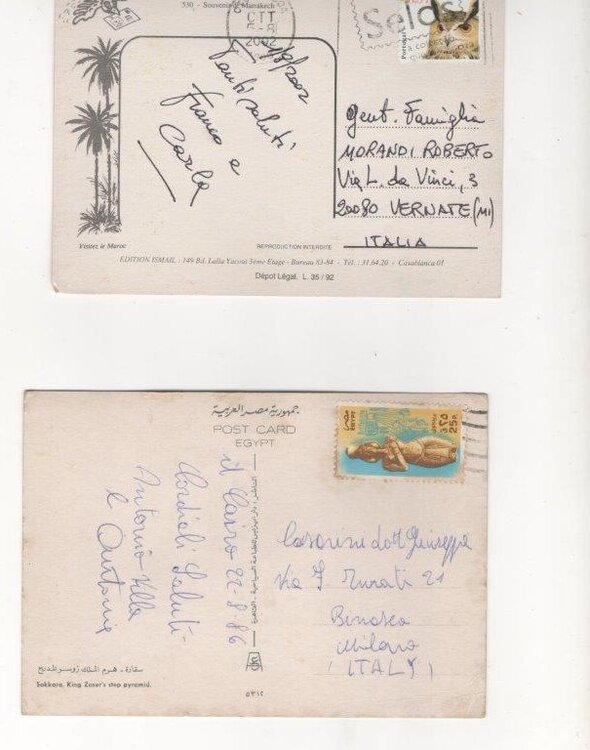 530 - Souvenir de Marrakech
CTT
2002
Portugal
/8/2002
Tanti saluti
Franco e
Carla
Gent. Famiglia
MORANDI ROBERTO
Via L. da Vinci, 3
20080 VERNATE (MI)
ITALIA
Visitez le Maroc
REPRODUCTION INTERDITE
EDITION ISMAIL : 149 Bd. Lalla Yacout 5ème Etage - Bureau 83-84 - Tél. : 31.64.20 - Casablanca 01
Dépôt Légal. L. 35 / 92
جمهورية مصر العربية
POST CARD
EGYPT
مصر
EGYPT
25P
il Cairo 22-8-86
Cordiali Saluti
Antonio Villa
e
dott Giuseppe
Via F. Turati 21
Binasco
Milano
(ITALY)
سقارة - هرم الملك زوسر المدرج
Sakkara, King Zoser's step pyramid.
٥٣١٢